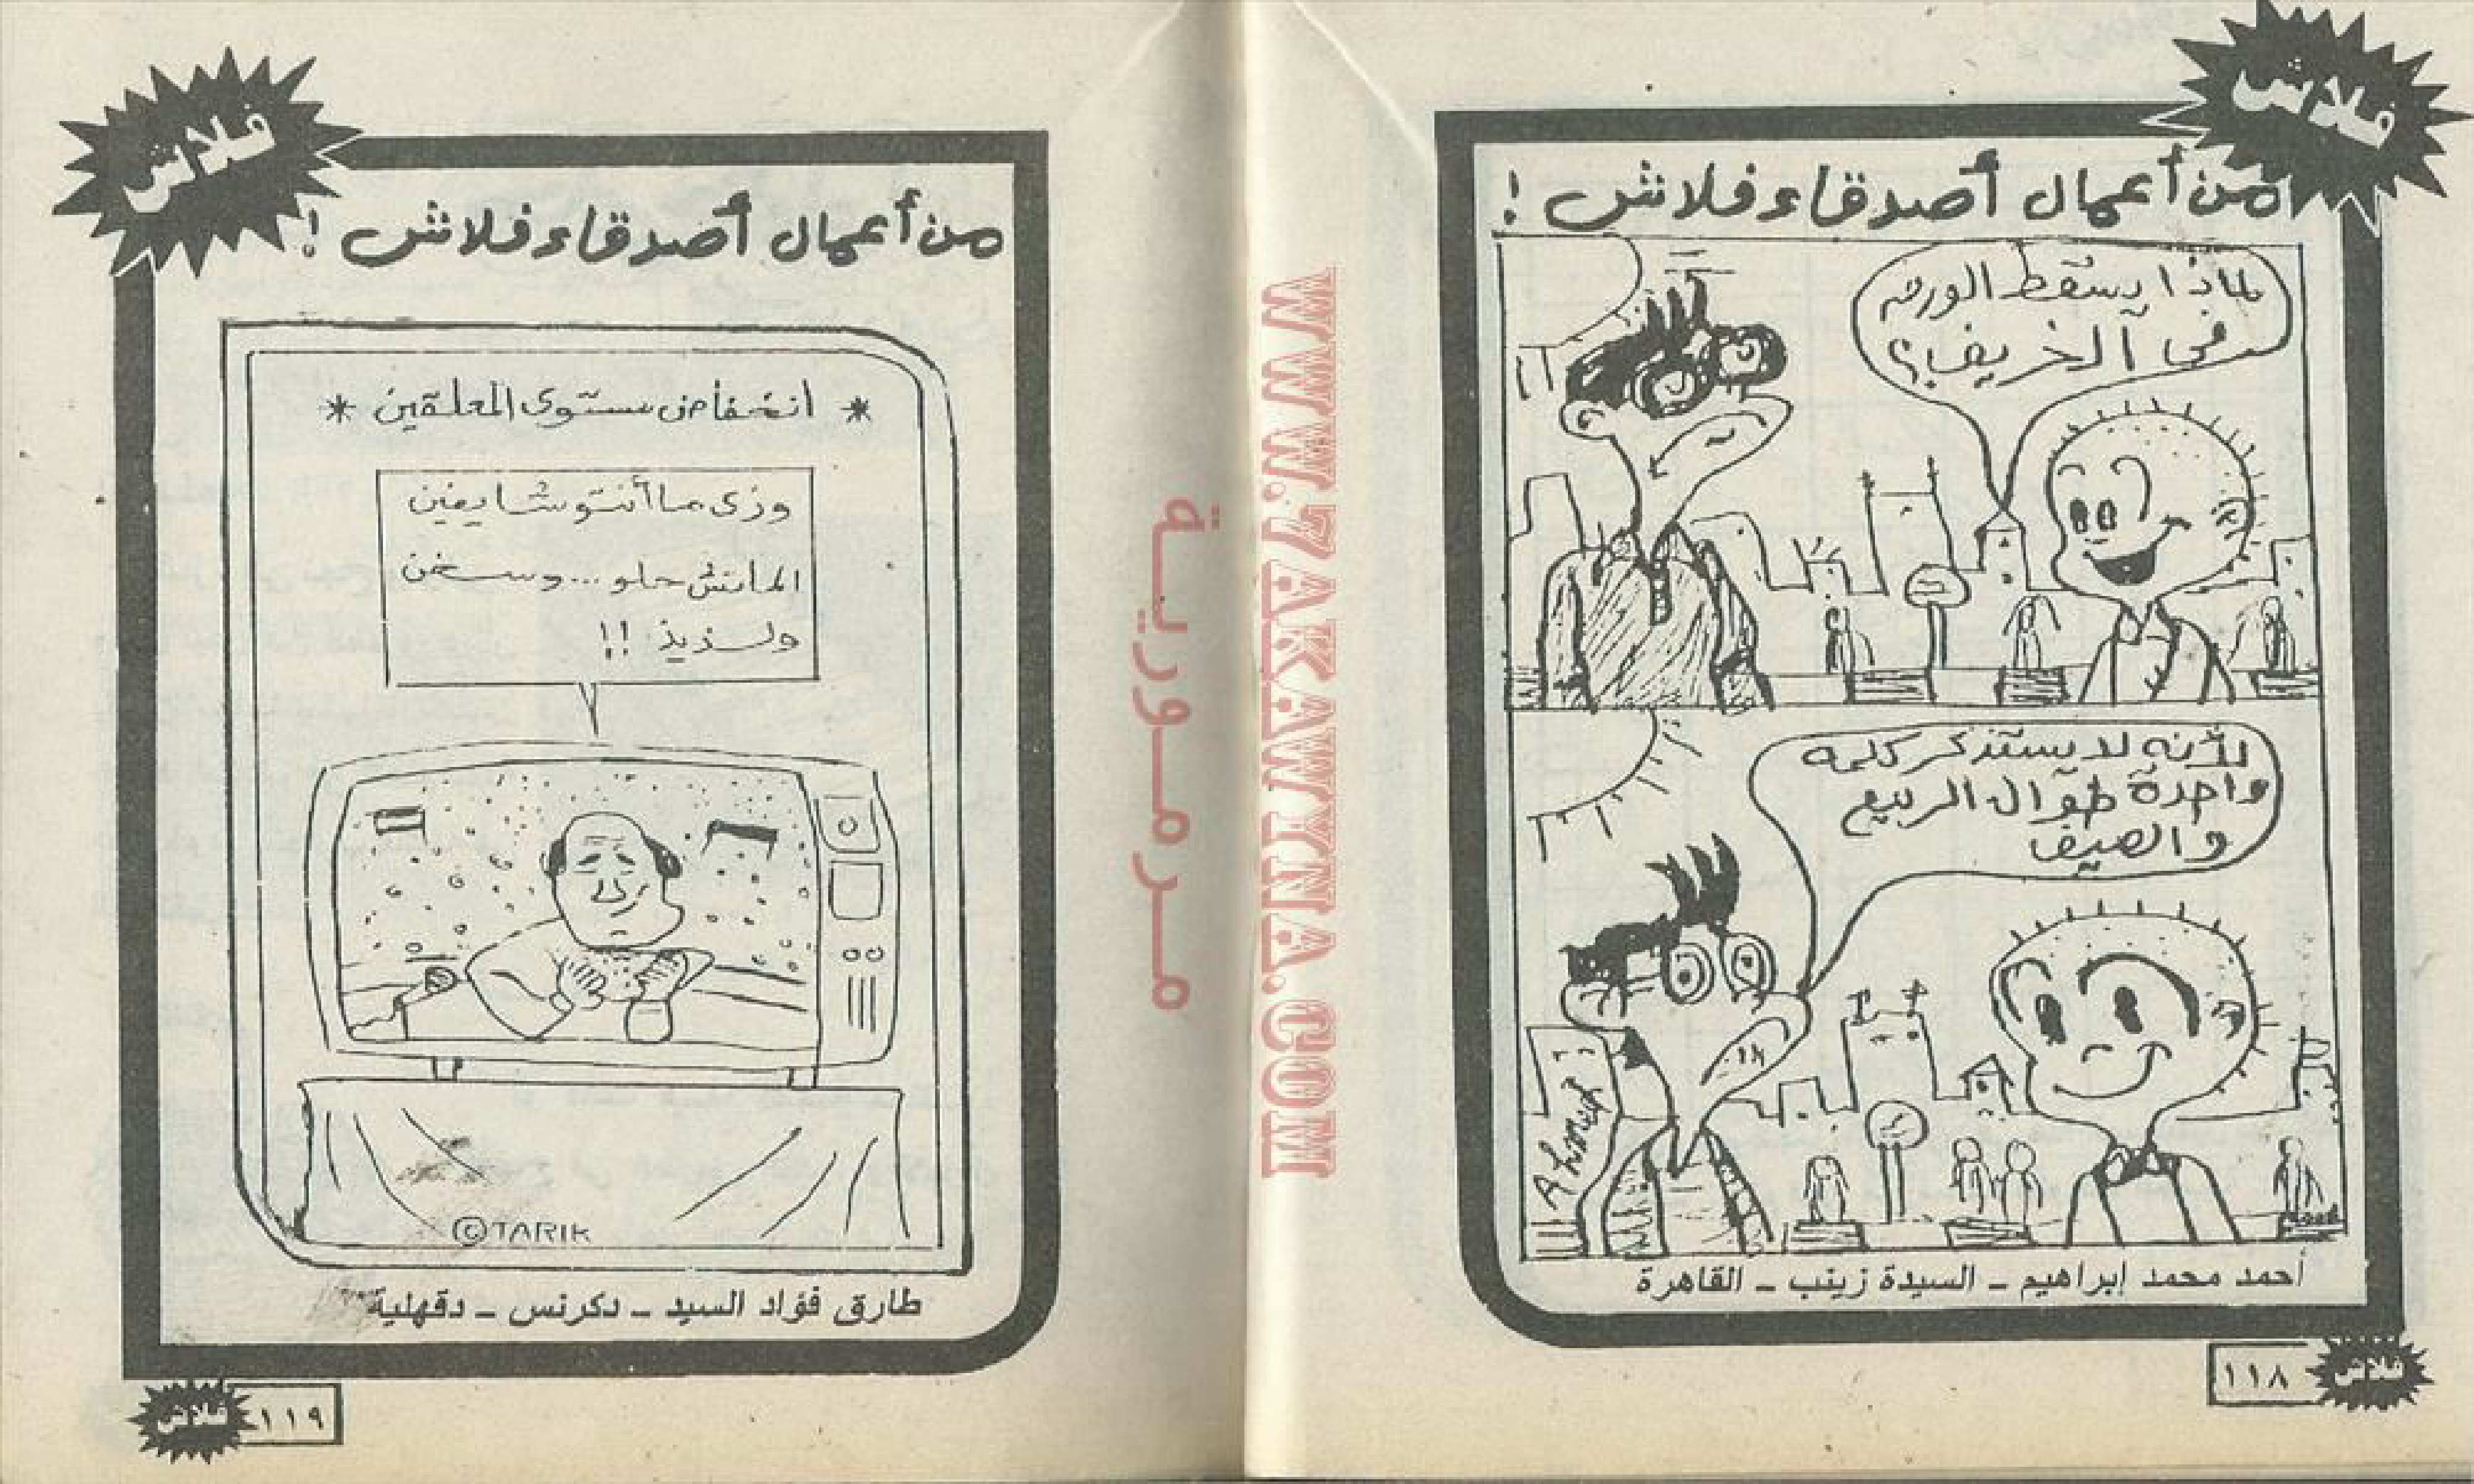 فلاش
من أعمال أصدقاء فلاش !
لماذا يسقط الورق
فى الخريف ؟
لأنه لا يستذكر كلمة
واحدة طوال الربيع
والصيف
Ahmed
أحمد محمد إبراهيم - السيدة زينب - القاهرة
١١٨
فلاش
WWW.7AKAWINA.COM
مرمورية
فلاش
من أعمال أصدقاء فلاش !
* انخفاض مستوى المعلقين *
وزى ما أنتو شايفين
الماتش حلو ... وسخن
ولذيذ !!
©TARIK
طارق فؤاد السيد - دكرنس - دقهلية
١١٩
فلاش